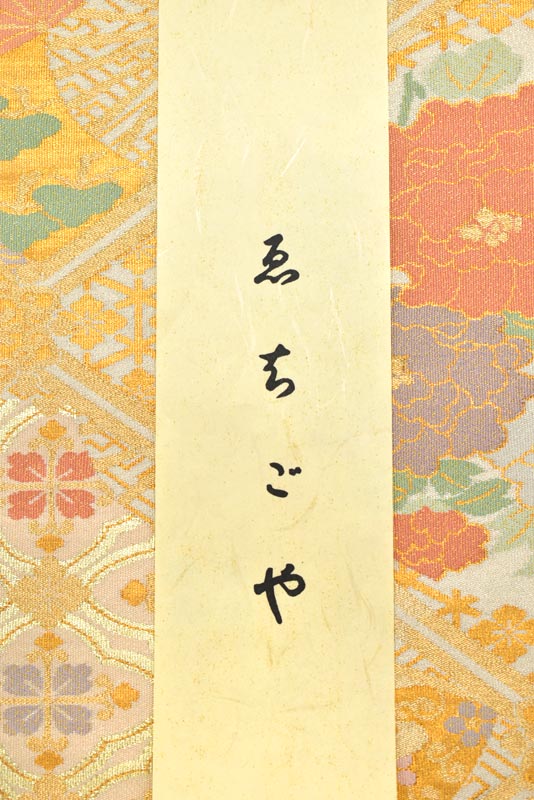 ゑちごや